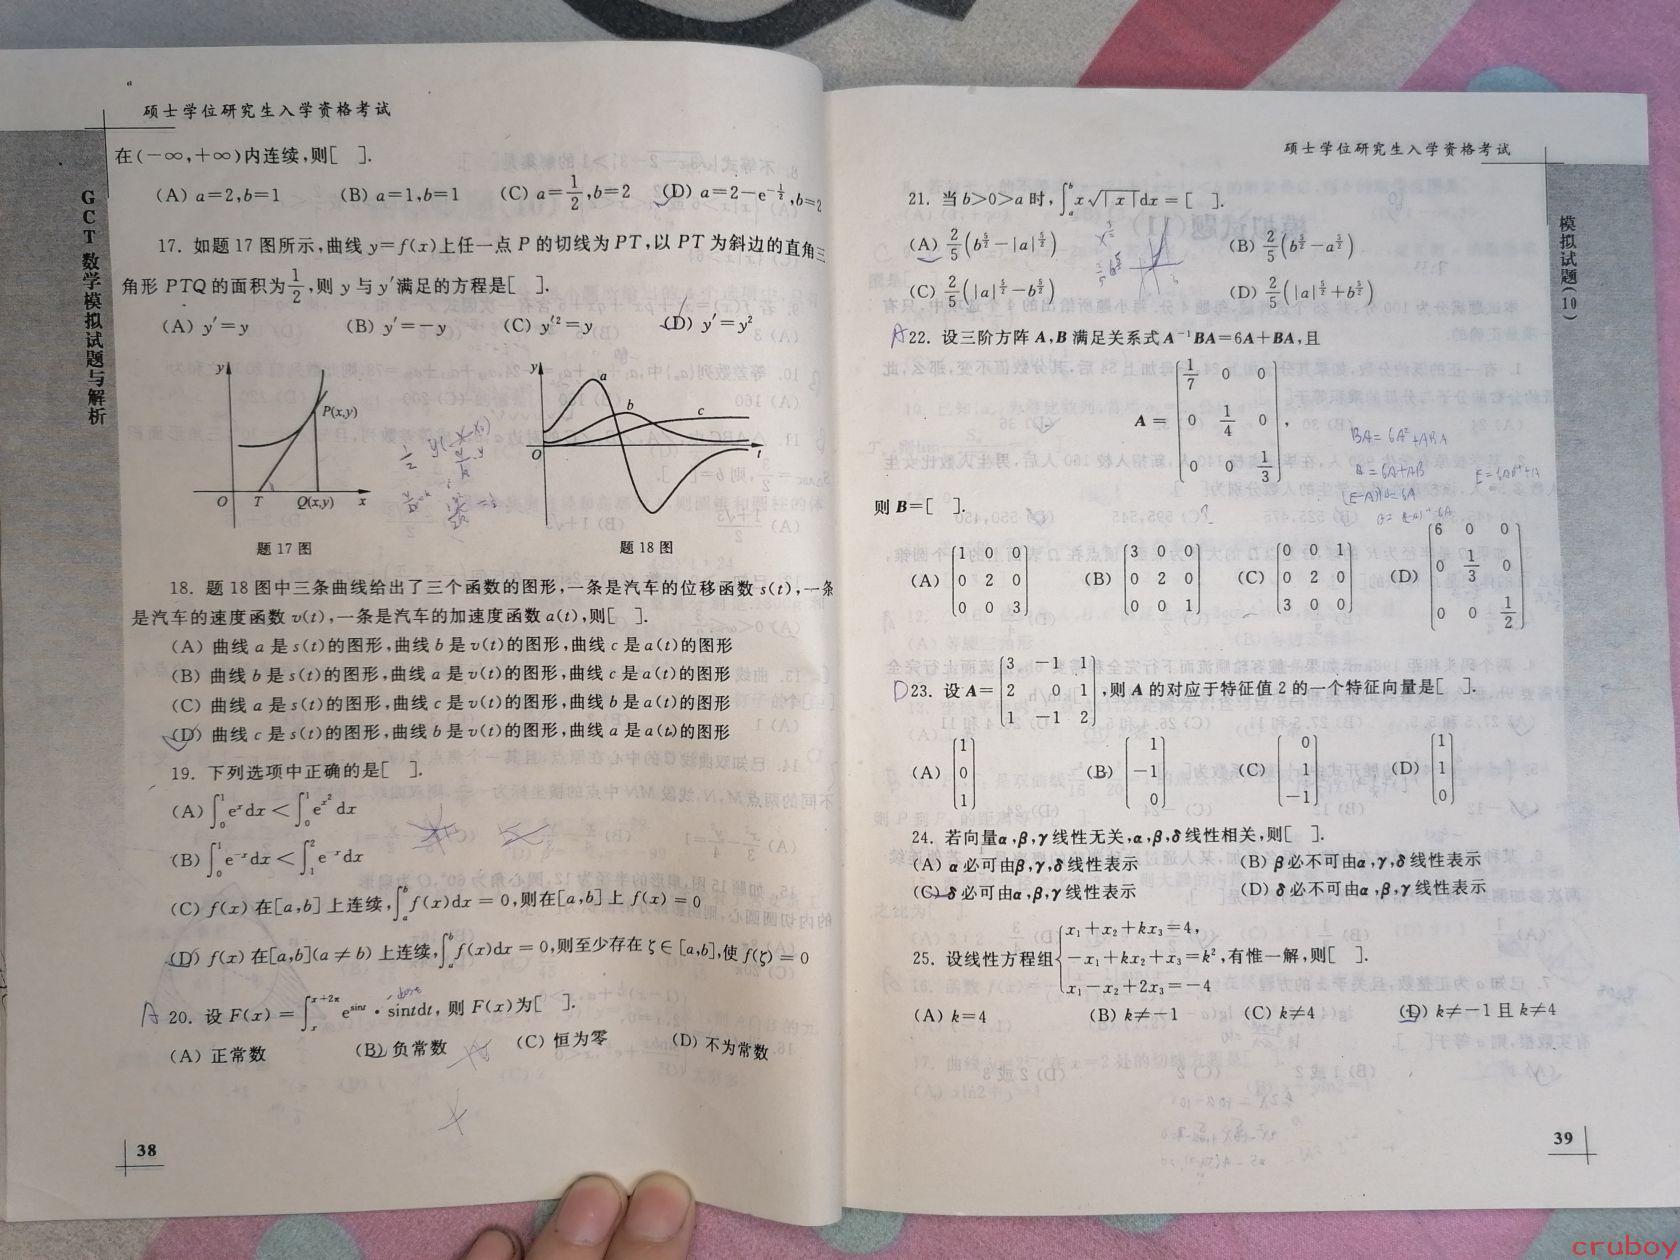 硕士学位研究生入学资格考试
GCT数学模拟试题与解析
在(-∞,+∞)内连续,则[ ].
(A) a=2,b=1 (B) a=1,b=1 (C) a=1/2,b=2 (D) a=2-e^{-1/2},b=2
17. 如题 17 图所示,曲线 y=f(x)上任一点 P 的切线为PT,以 PT 为斜边的直角三
角形 PTQ 的面积为1/2,则 y 与 y′满足的方程是[ ].
(A) y′=y (B) y′=-y (C) y′²=y (D) y′=y²
y P(x,y) O T Q(x,y) x
y a b c O t
题 17 图 题 18 图
18. 题 18 图中三条曲线给出了三个函数的图形,一条是汽车的位移函数 s(t),一条
是汽车的速度函数 v(t),一条是汽车的加速度函数 a(t),则[ ].
(A) 曲线 a 是 s(t)的图形,曲线 b 是 v(t)的图形,曲线 c 是 a(t)的图形
(B) 曲线 b 是 s(t)的图形,曲线 a 是 v(t)的图形,曲线 c 是 a(t)的图形
(C) 曲线 a 是 s(t)的图形,曲线 c 是 v(t)的图形,曲线 b 是 a(t)的图形
(D) 曲线 c 是 s(t)的图形,曲线 b 是 v(t)的图形,曲线 a 是 a(t)的图形
19. 下列选项中正确的是[ ].
(A) ∫₀¹ e^x dx < ∫₀¹ e^{x²} dx
(B) ∫₀¹ e^{-x} dx < ∫₁² e^{-x} dx
(C) f(x) 在[a,b] 上连续,∫ₐᵇ f(x)dx = 0,则在[a,b] 上 f(x) = 0
(D) f(x) 在[a,b](a ≠ b) 上连续,∫ₐᵇ f(x)dx = 0,则至少存在 ζ ∈ [a,b],使 f(ζ) = 0
A 20. 设 F(x) = ∫ₓ^{x+2π} e^{sint} · sintdt, 则 F(x)为[ ].
(A) 正常数 (B) 负常数 (C) 恒为零 (D) 不为常数
38
硕士学位研究生入学资格考试
模拟试题(10)
21. 当 b>0>a 时,∫ₐᵇ x√|x| dx = [ ].
(A) 2/5(b^{5/2}-|a|^{5/2}) (B) 2/5(b^{5/2}-a^{5/2})
(C) 2/5(|a|^{5/2}-b^{5/2}) (D) 2/5(|a|^{5/2}+b^{5/2})
A 22. 设三阶方阵 A,B 满足关系式 A⁻¹BA=6A+BA,且
1/7 0 0
A = 0 1/4 0 ,
0 0 1/3
BA=6A²+ABA
B=6A+AB
(E-A)B=6A
则 B=[ ].
(A) (B) (C) (D)
1 0 0 3 0 0 0 0 1 6 0 0
0 2 0 0 2 0 0 2 0 0 1/3 0
0 0 3 0 0 1 3 0 0 0 0 1/2
D 23. 设 A= ,则 A 的对应于特征值 2 的一个特征向量是[ ].
3 -1 1
2 0 1
1 -1 2
(A) (B) (C) (D)
1 1 0 1
0 -1 1 1
1 0 -1 0
24. 若向量α,β,γ线性无关,α,β,δ线性相关,则[ ].
(A) α必可由β,γ,δ线性表示 (B) β必不可由α,γ,δ线性表示
(C) δ必可由α,β,γ线性表示 (D) δ必不可由α,β,γ线性表示
x₁+x₂+kx₃=4,
25. 设线性方程组 -x₁+kx₂+x₃=k²,有惟一解,则[ ].
x₁-x₂+2x₃=-4
(A) k=4 (B) k≠-1 (C) k≠4 (D) k≠-1 且 k≠4
39
cruboy